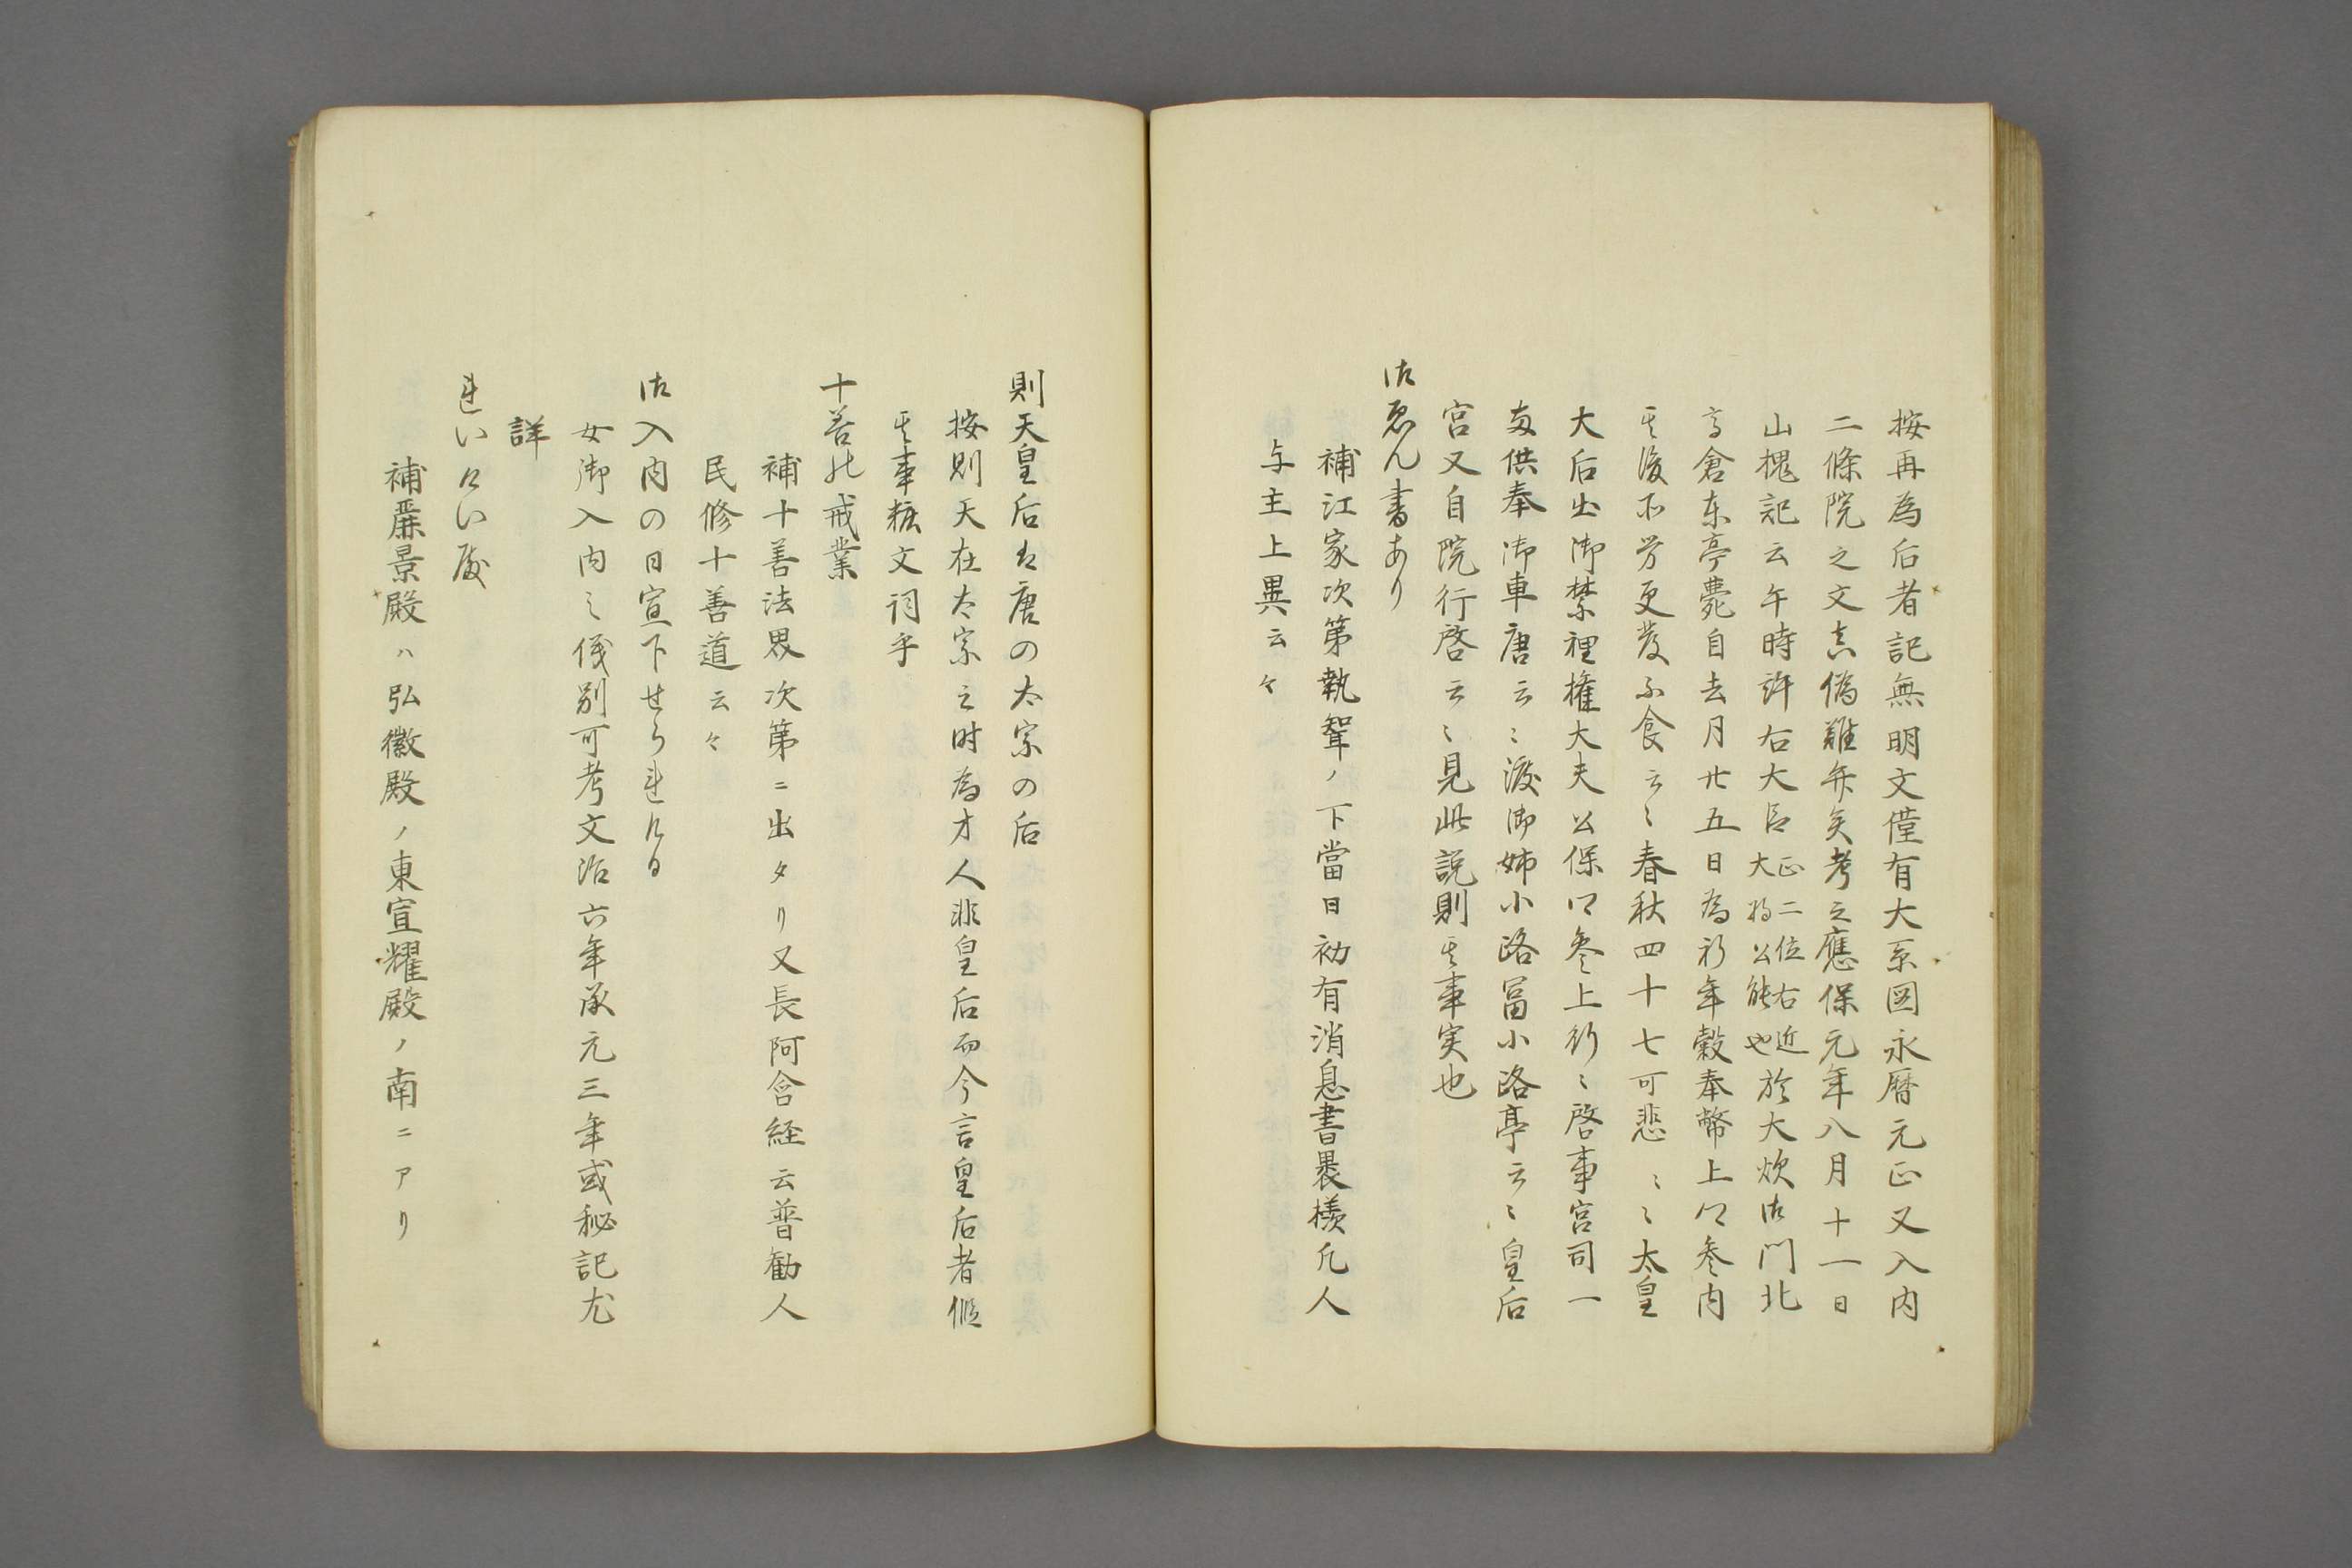 按再為后者記無明文僅有大系図永暦元正又入内
二條院之文真偽難弁矣考之應保元年八月十一日
山槐記云午時許右大臣正二位右近大将公能也於大炊御門北
高倉東亭薨自去月廿五日為祈年穀奉幣上卿参内
其後不労更發不食云々春秋四十七可悲々々太皇
大后出御禁裡権大夫公保卿参上行々啓事宮司一
両供奉御車唐云々渡御姉小路冨小路亭云々皇后
宮又自院行啓云々見此説則其事実也
御ゑん書あり
補江家次第執聟ノ下當日初有消息書褁様凡人
与主上異云々
則天皇后は唐の太宗の后
按則天在太宗之时為才人非皇后而今言皇后者傚
其事抜文詞乎
十善の戒業
補十善法界次第ニ出タリ又長阿含経云普勧人
民修十善道云々
御入内の日宣下せられける
女御入内之儀別可考文治六年承元三年或秘記尤
詳
れいけい殿
補麗景殿ハ弘徽殿ノ東宣耀殿ノ南ニアリ